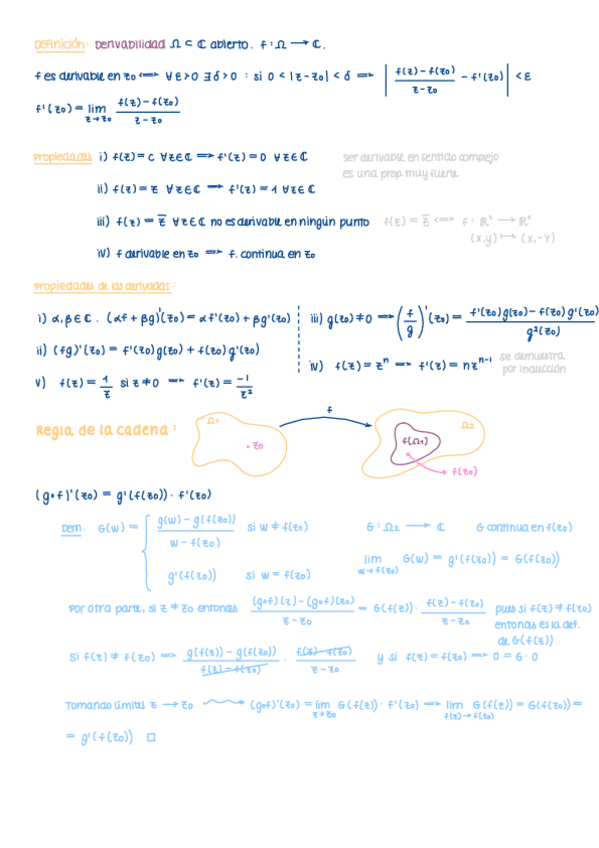 Definición: Derivabilidad Ω ⊂ ℂ abierto. f: Ω → ℂ.
f es derivable en z₀ <=> ∀ε>0 ∃δ>0 : si 0 < |z-z₀| < δ => | (f(z)-f(z₀))/(z-z₀) - f'(z₀) | < ε
f'(z₀) = lim z→z₀ (f(z)-f(z₀))/(z-z₀)
Propiedades i) f(z) = c ∀z∈ℂ => f'(z) = 0 ∀z∈ℂ
ser derivable en sentido complejo
es una prop. muy fuerte
ii) f(z) = z ∀z∈ℂ => f'(z) = 1 ∀z∈ℂ
iii) f(z) = z̅ ∀z∈ℂ no es derivable en ningún punto f(z) = z̅ <=> f: ℝ² → ℝ²
(x,y) ↦ (x,-y)
iv) f derivable en z₀ => f. continua en z₀
Propiedades de las derivadas:
i) α,β∈ℂ. (αf + βg)'(z₀) = αf'(z₀) + βg'(z₀)
iii) g(z₀) ≠ 0 => (f/g)'(z₀) = (f'(z₀)g(z₀) - f(z₀)g'(z₀))/g²(z₀)
ii) (fg)'(z₀) = f'(z₀)g(z₀) + f(z₀)g'(z₀)
iv) f(z) = zⁿ => f'(z) = nzⁿ⁻¹
se demuestra
por inducción
v) f(z) = 1/z si z ≠ 0 => f'(z) = -1/z²
Regla de la cadena:
Ω₁
z₀
f
Ω₂
f(Ω₁)
f(z₀)
(g∘f)'(z₀) = g'(f(z₀)) · f'(z₀)
Dem. G(w) = { (g(w) - g(f(z₀)))/(w - f(z₀)) si w ≠ f(z₀)
G: Ω₂ → ℂ G continua en f(z₀)
g'(f(z₀)) si w = f(z₀)
lim w→f(z₀) G(w) = g'(f(z₀)) = G(f(z₀))
Por otra parte, si z ≠ z₀ entonces ((g∘f)(z) - (g∘f)(z₀))/(z-z₀) = G(f(z)) · (f(z)-f(z₀))/(z-z₀) pues si f(z) ≠ f(z₀)
entonces es la def.
de G(f(z))
Si f(z) ≠ f(z₀) => (g(f(z)) - g(f(z₀)))/(f(z) - f(z₀)) · (f(z) - f(z₀))/(z-z₀) y si f(z) = f(z₀) => 0 = G·0
Tomando límites z → z₀ ⇝ (g∘f)'(z₀) = lim z→z₀ G(f(z)) · f'(z₀) => lim f(z)→f(z₀) G(f(z)) = G(f(z₀)) =
= g'(f(z₀)) □